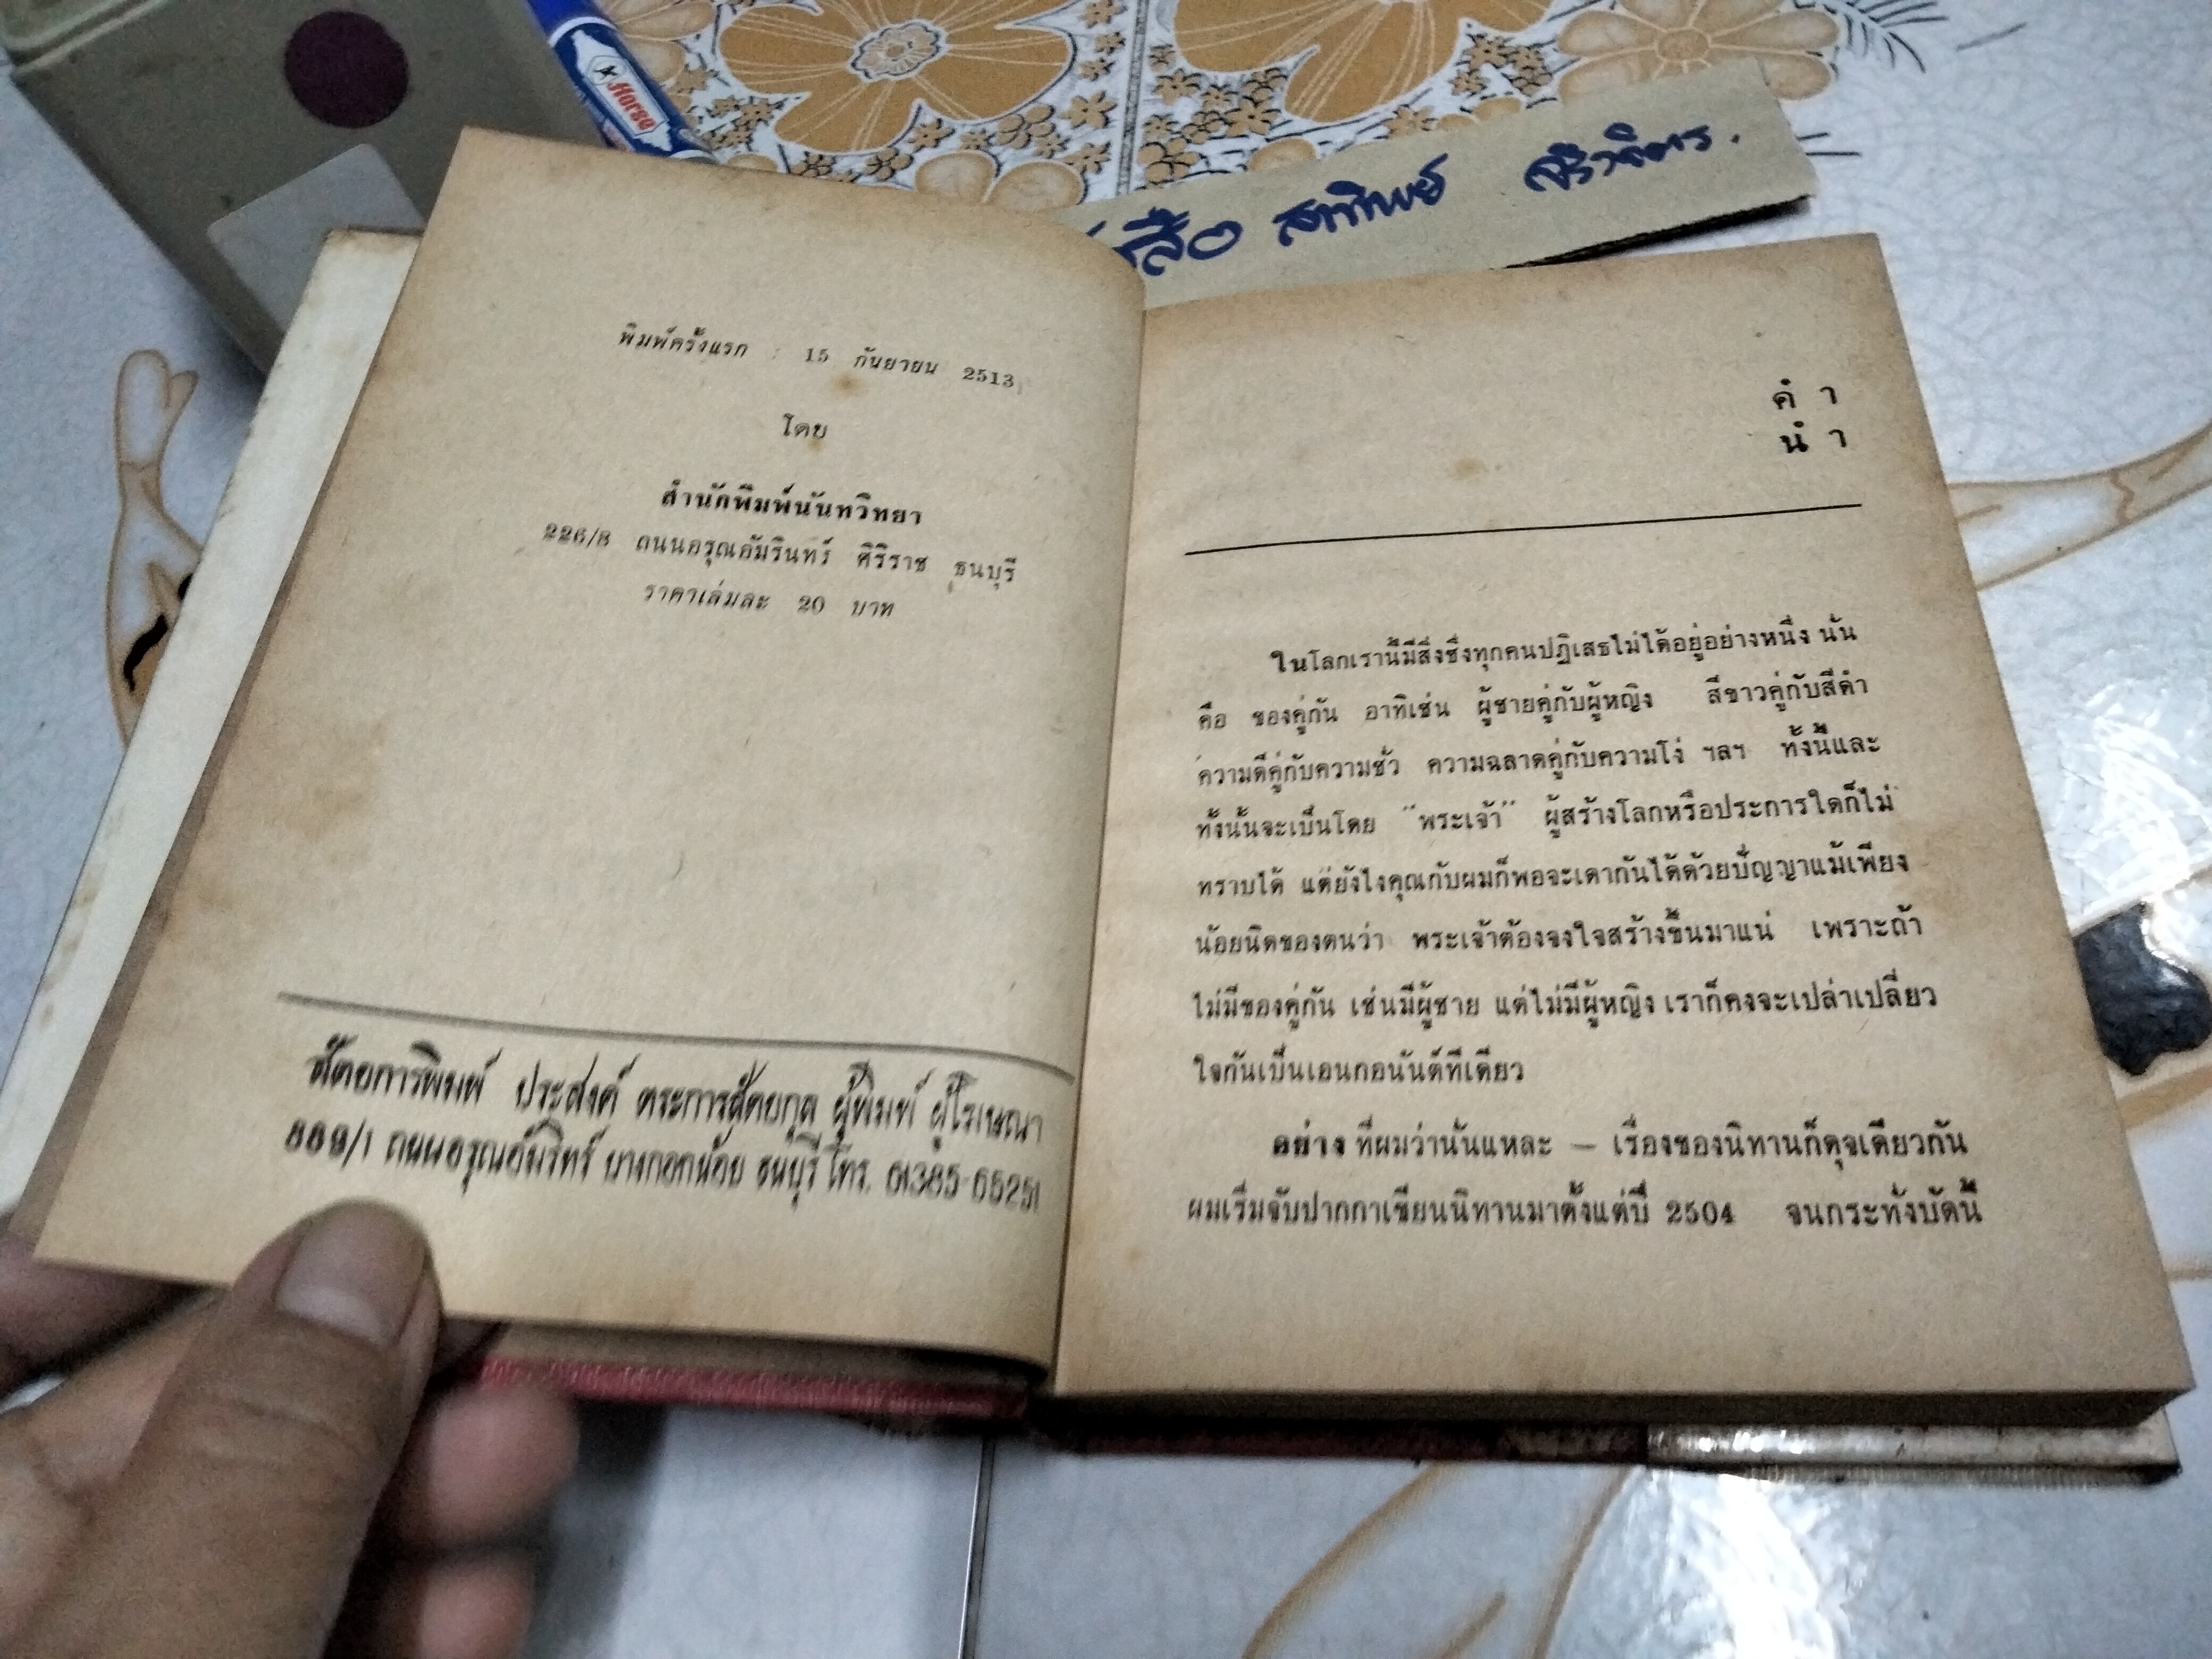 Horse
สาทิพย์
พิมพ์ครั้งแรก : 15 กันยายน 2513
โดย
สำนักพิมพ์นันทวิทยา
226/8 ถนนอรุณอัมรินทร์ ศิริราช ธนบุรี
ราคาเล่มละ 20 บาท
สัตยการพิมพ์ ประสงค์ ตระการสัตยกุล ผู้พิมพ์ ผู้โฆษณา
889/1 ถนนอรุณอัมรินทร์ บางกอกน้อย ธนบุรี โทร.
คำ
นำ
ในโลกเรานี้มีสิ่งซึ่งทุกคนปฏิเสธไม่ได้อยู่อย่างหนึ่ง นั่น
คือ ของคู่กัน อาทิเช่น ผู้ชายคู่กับผู้หญิง สีขาวคู่กับสีดำ
ความดีคู่กับความชั่ว ความฉลาดคู่กับความโง่ ฯลฯ ทั้งนี้และ
ทั้งนั้นจะเป็นโดย "พระเจ้า" ผู้สร้างโลกหรือประการใดก็ไม่
ทราบได้ แต่ยังไงคุณกับผมก็พอจะเดากันได้ด้วยปัญญาแม้เพียง
น้อยนิดของตนว่า พระเจ้าต้องจงใจสร้างขึ้นมาแน่ เพราะถ้า
ไม่มีของคู่กัน เช่นมีผู้ชาย แต่ไม่มีผู้หญิง เราก็คงจะเปล่าเปลี่ยว
ใจกันเป็นเอนกอนันต์ทีเดียว
อย่าง ที่ผมว่านั่นแหละ – เรื่องของนิทานก็ดุจเดียวกัน
ผมเริ่มจับปากกาเขียนนิทานมาตั้งแต่ปี 2504 จนกระทั่งบัดนี้